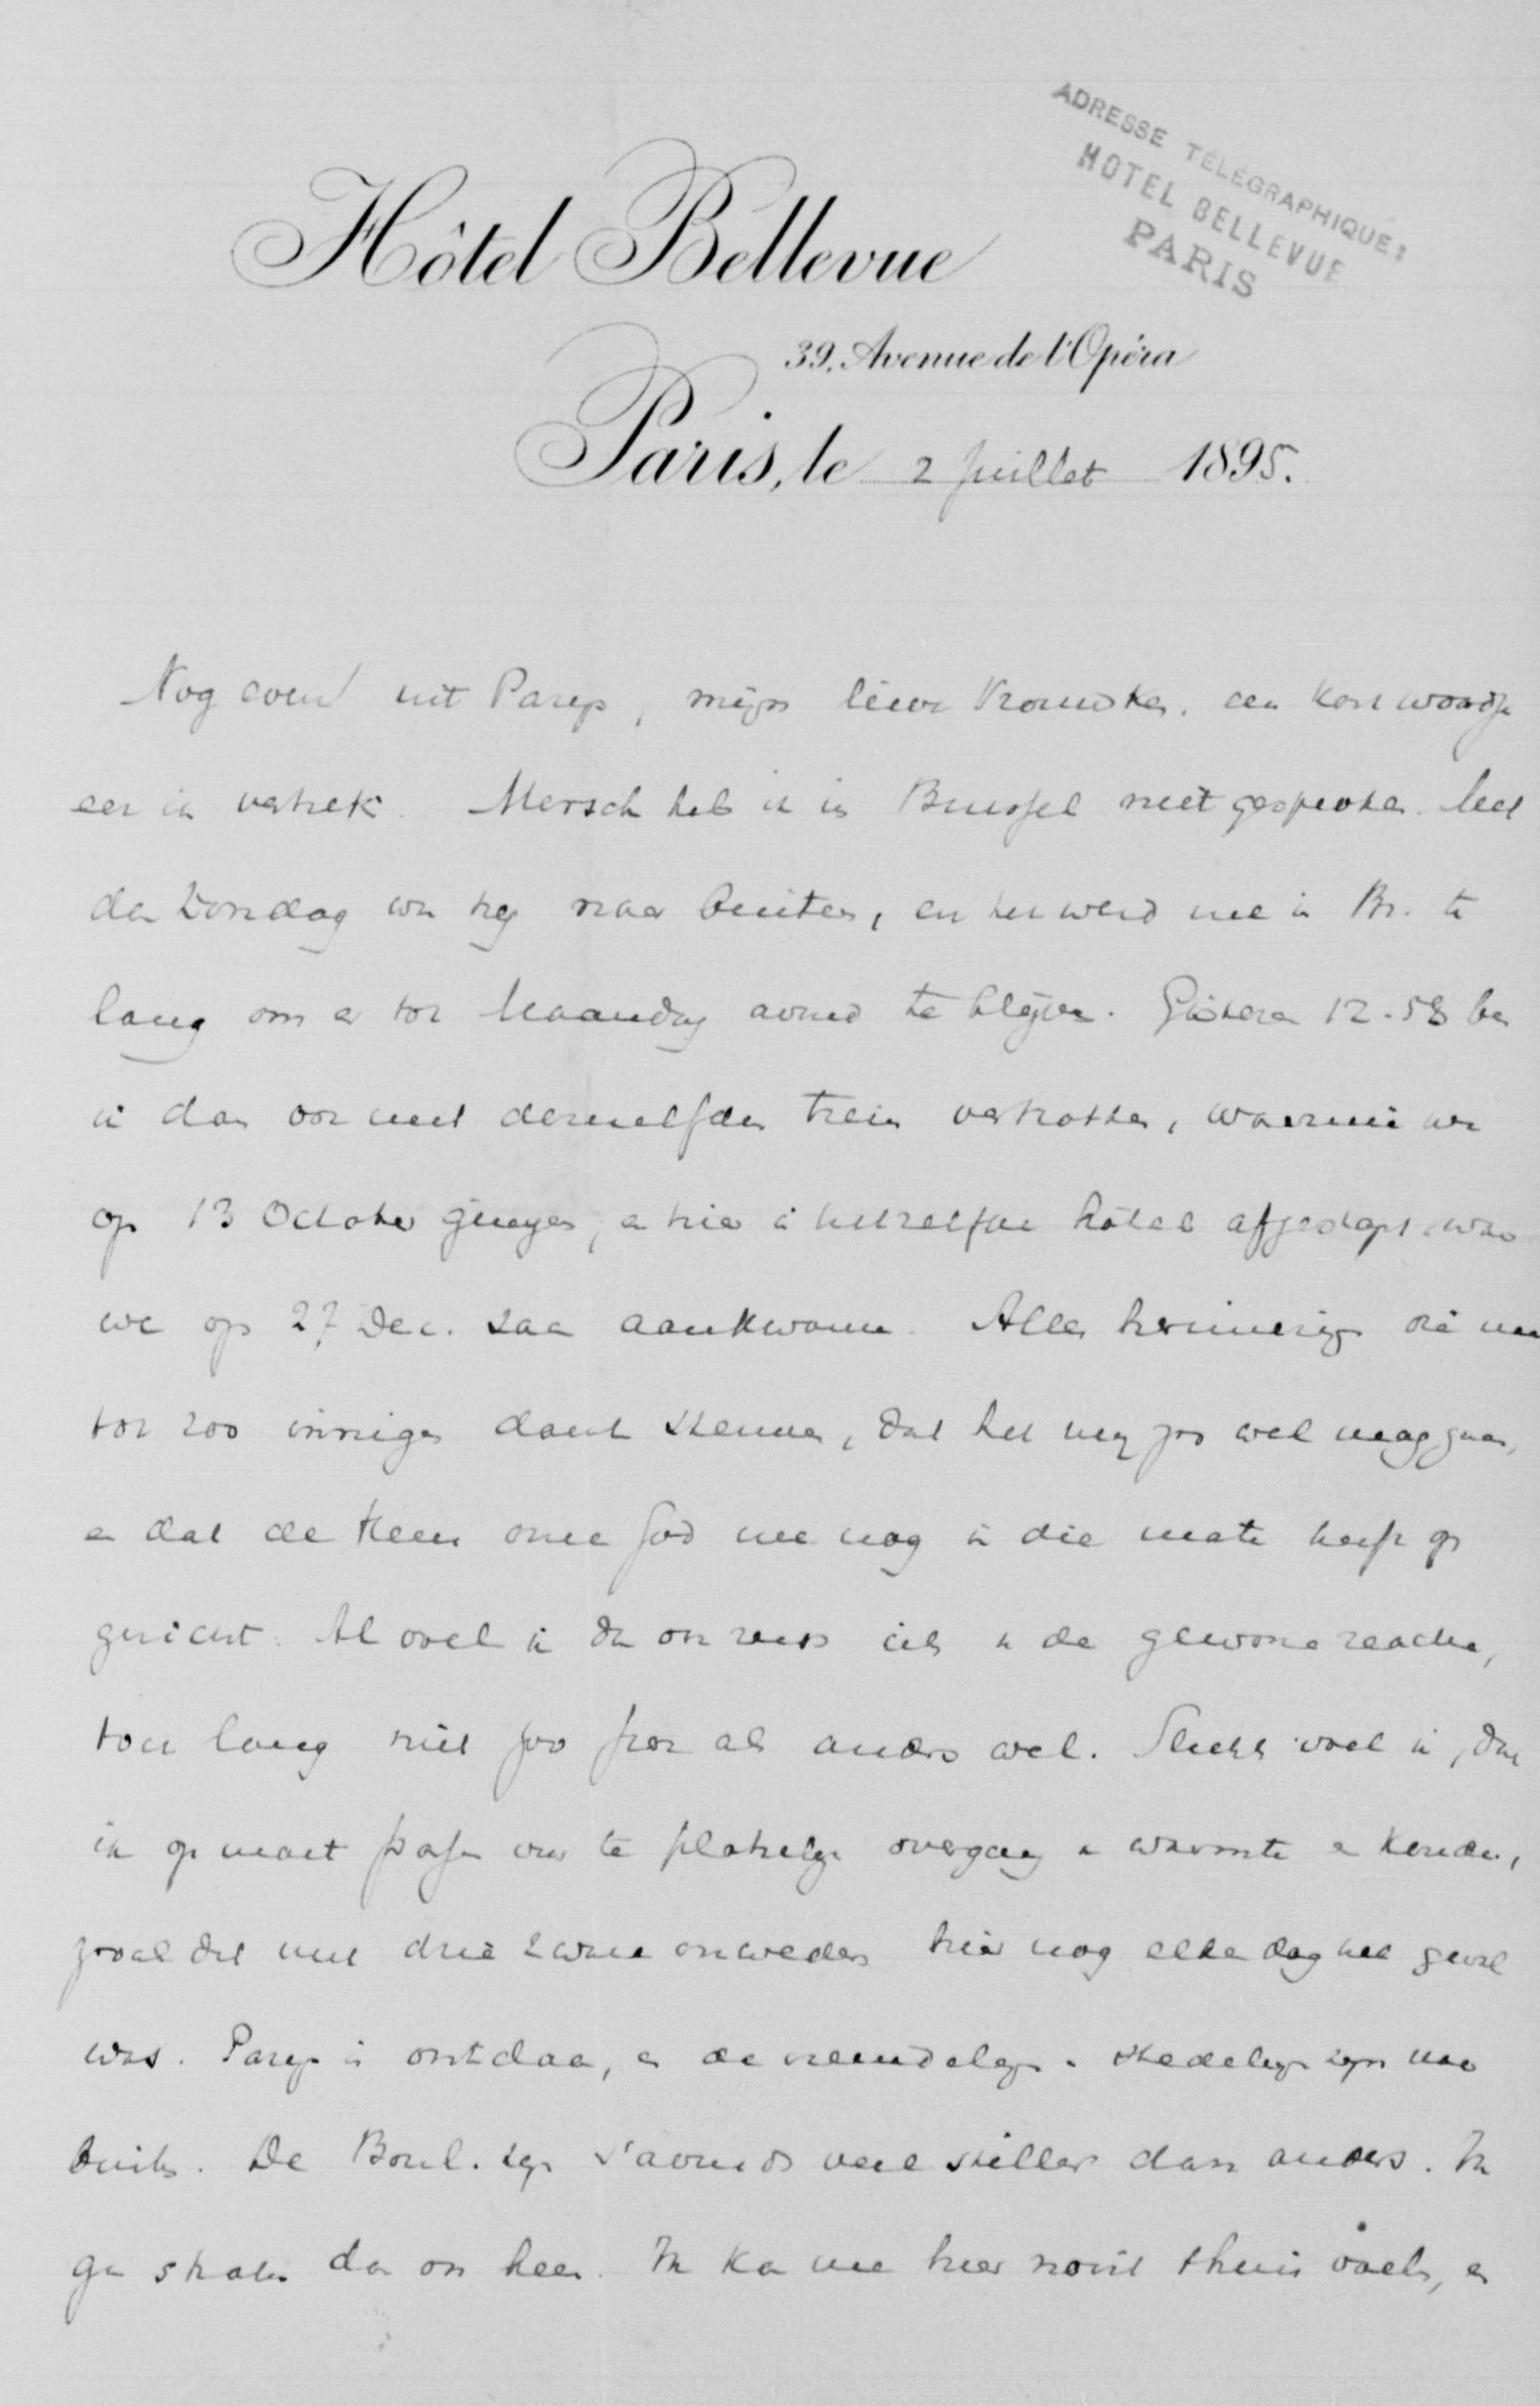 ADRESSE TÉLÉGRAPHIQUE:
HOTEL BELLEVUE
PARIS
Hôtel Bellevue
39, Avenue de l'Opéra
Paris, le 2 juillet 1895.
Nog even uit Parijs, mijn lieve Vrouwke, een kort woordje
eer ik vertrek. Mersch heb ik in Brussel niet gesproken. Met
den Zondag was hij naar buiten, en het werd me in Br. te
lang om er tot Maandag avond te blijven. Gisteren 12.58 ben
ik dan ook met denzelfden trein vertrokken, waarmee we
op 13 October gingen, en hier in hetzelfde hôtel afgestapt waar
we op 27 Dec. saam aankwamen. Alles herinneringen die me
tot zoo innigen dank stemmen, dat het mij zoo wel mag gaan,
en dat de Heere onze God me nog in die mate heeft op
gericht. Al voel ik dan ook weer iets van de gewone reactie,
toch lang niet zoo sterk als anders wel. Slechts voel ik, dat
ik op moet passen voor te plotselingen overgang in warmte en koude,
zooals dit met drie zware onweders hier nog elken dag het geval
was. Parijs is ontdaan, en de vreemdelingen en stedelingen zijn naar
buiten. De Boul. zijn 's avonds veel stiller dan anders. Ik
ga straks dan ook heen. Ik kan me hier nooit thuis voelen, en